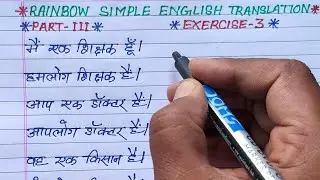 *RAINBOW SIMPLE ENGLISH TRANSLATION*
*PART-III* *EXERCISE-3*
मैं एक शिक्षक हूँ।
हमलोग शिक्षक हैं।
आप एक डॉक्टर हैं।
आपलोग डॉक्टर हैं।
वह एक किसान है।